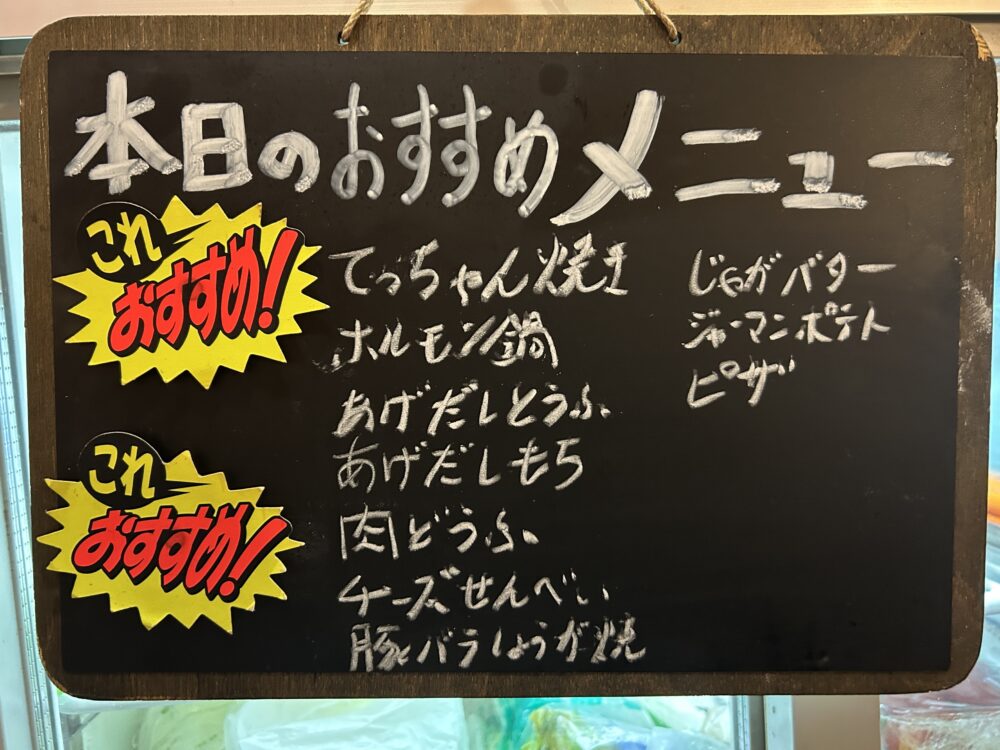 本日のおすすめメニュー
これ
おすすめ!
これ
おすすめ!
てっちゃん焼き
ホルモン鍋
あげだしとうふ
あげだしもち
肉どうふ
チーズせんべい
豚バラしょうが焼
じゃがバター
ジャーマンポテト
ピザ